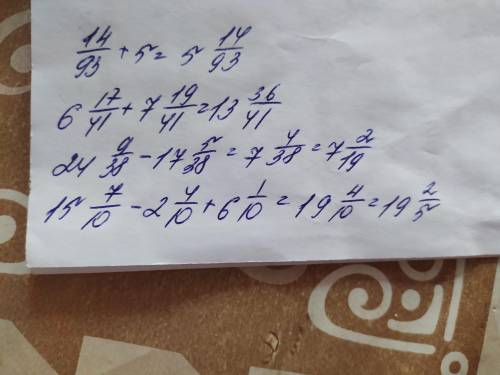 14/93 + 5 = 5 14/93
6 17/41 + 7 19/41 = 13 36/41
24 9/38 - 17 5/38 = 7 4/38 = 7 2/19
15 7/10 - 2 4/10 + 6 1/10 = 19 4/10 = 19 2/5